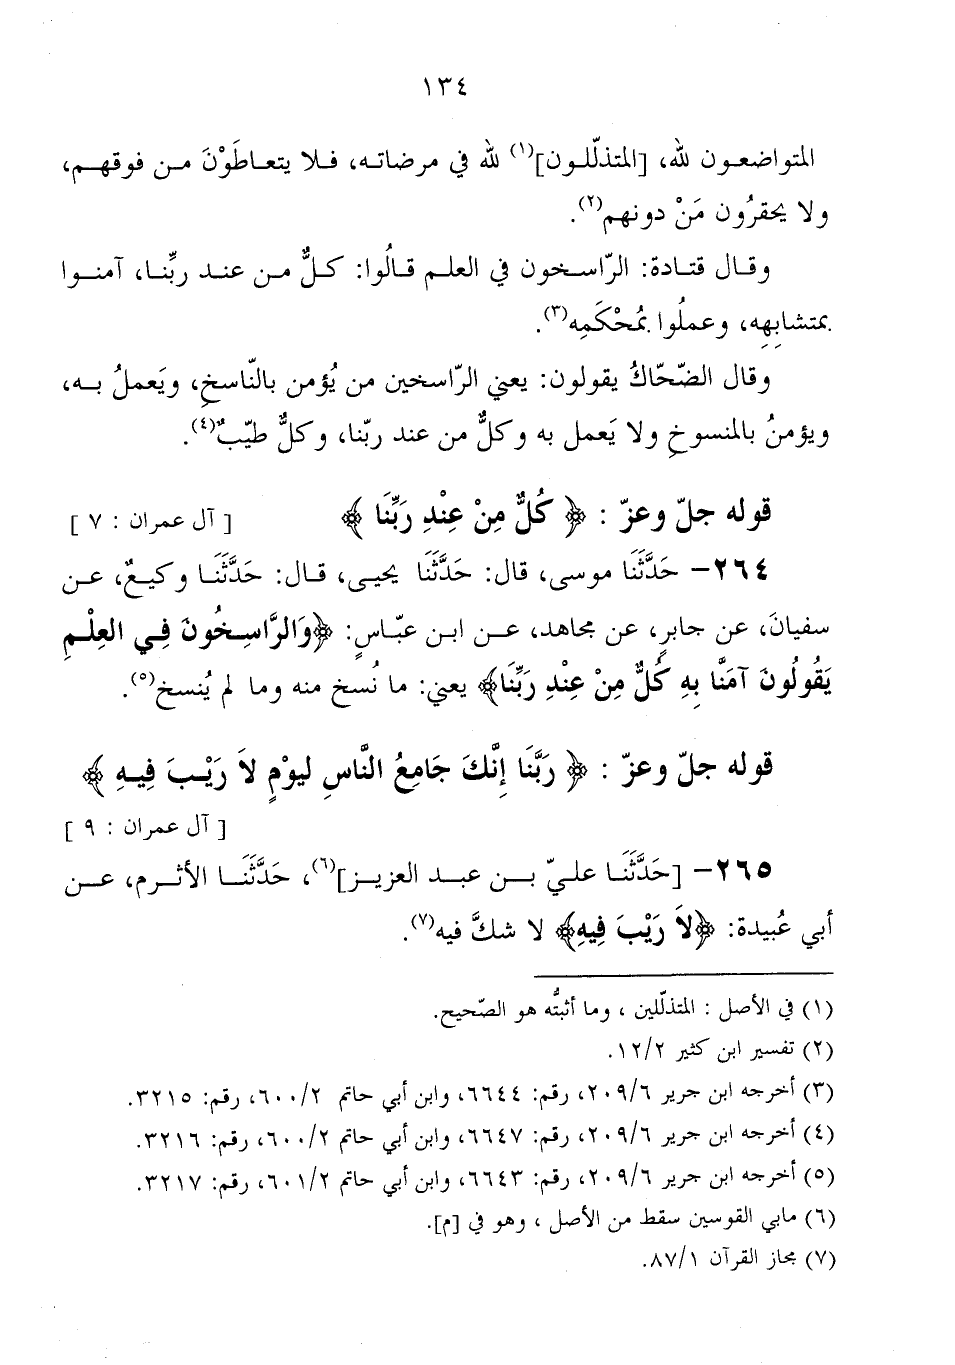 ١٣٤
المتواضعون لله، [المتذلّلون](١) لله في مرضاته، فلا يتعاطَوْنَ من فوقهم،
ولا يحقرُون مَنْ دونهم(٢).
وقال قتادة: الرّاسخون في العلم قالُوا: كلٌّ من عند ربِّنا، آمنوا
بمتشابِهِه، وعملُوا بمُحْكَمِه(٣).
وقال الضّحّاكُ يقولون: يعني الرّاسخين من يُؤمن بالنّاسخِ، ويَعملُ به،
ويؤمنُ بالمنسوخِ ولا يَعمل به وكلٌّ من عند ربّنا، وكلٌّ طيّبٌ(٤).
قوله جلّ وعزّ : ﴿ كُلٌّ مِنْ عِنْدِ رَبِّنَا ﴾ [ آل عمران : ٧ ]
٢٦٤- حَدَّثَنَا موسى، قال: حَدَّثَنَا يحيى، قال: حَدَّثَنَا وكيعٌ، عن
سفيانَ، عن جابرٍ، عن مجاهد، عن ابن عبّاسٍ: ﴿وَالرَّاسِخُونَ فِي العِلْمِ
يَقُولُونَ آمَنَّا بِهِ كُلٌّ مِنْ عِنْدِ رَبِّنَا﴾ يعني: ما نُسخ منه وما لم يُنسخ(٥).
قوله جلّ وعزّ : ﴿ رَبَّنَا إِنَّكَ جَامِعُ النَّاسِ لِيوْمٍ لاَ رَيْبَ فِيهِ ﴾
[ آل عمران : ٩ ]
٢٦٥- [حَدَّثَنَا عليّ بن عبد العزيز](٦)، حَدَّثَنَا الأثرم، عن
أبي عُبيدة: ﴿لاَ رَيْبَ فِيهِ﴾ لا شكَّ فيه(٧).
(١) في الأصل : المتذلّلين ، وما أثبتُّه هو الصّحيح.
(٢) تفسير ابن كثير ١٢/٢.
(٣) أخرجه ابن جرير ٢٠٩/٦، رقم: ٦٦٤٤، وابن أبي حاتم ٦٠٠/٢، رقم: ٣٢١٥.
(٤) أخرجه ابن جرير ٢٠٩/٦، رقم: ٦٦٤٧، وابن أبي حاتم ٦٠٠/٢، رقم: ٣٢١٦.
(٥) أخرجه ابن جرير ٢٠٩/٦، رقم: ٦٦٤٣، وابن أبي حاتم ٦٠١/٢، رقم: ٣٢١٧.
(٦) مابي القوسين سقط من الأصل ، وهو في [م].
(٧) مجاز القرآن ٨٧/١.